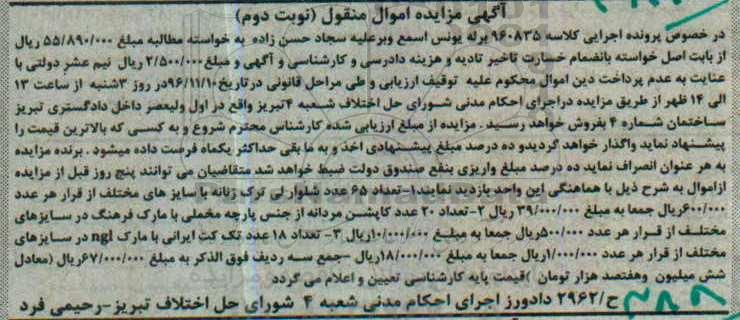 آگهی مزایده اموال منقول (نوبت دوم)
در خصوص پرونده اجرایی کلاسه ۹۶۰۸۳۵ برله یونس اسمع وبرعلیه سجاد حسن زاده به خواسته مطالبه مبلغ ۵۵/۸۹۰/۰۰۰ ریال
از بابت اصل خواسته بانضمام خسارت تاخیر تادیه و هزینه دادرسی و کارشناسی و آگهی و مبلغ ۲/۵۰۰/۰۰۰ ریال نیم عشر دولتی با
عنایت به عدم پرداخت دین اموال محکوم علیه توقیف ارزیابی و طی مراحل قانونی درتاریخ ۹۶/۱۱/۱۰ در روز ۳شنبه از ساعت ۱۳
الی ۱۴ ظهر از طریق مزایده دراجرای احکام مدنی شورای حل اختلاف شعبه ۴تبریز واقع در اول ولیعصر داخل دادگستری تبریز
ساختمان شماره ۴ بفروش خواهد رسید. مزایده از مبلغ ارزیابی شده کارشناس محترم شروع و به کسی که بالاترین قیمت را
پیشنهاد نماید واگذار خواهد گردیدو ده درصد مبلغ پیشنهادی اخذ و به ما بقی حداکثر یکماه فرصت داده میشود . برنده مزایده
به هر عنوان انصراف نماید ده درصد مبلغ واریزی بنفع صندوق دولت ضبط خواهد شد متقاضیان می توانند پنج روز قبل از مزایده
ازاموال به شرح ذیل با هماهنگی این واحد بازدید نمایند۱-تعداد ۶۵ عدد شلوار لی ترک زنانه با سایز های مختلف از قرار هر عدد
۶۰۰/۰۰۰ریال جمعا به مبلغ ۳۹/۰۰۰/۰۰۰ ریال ۲-تعداد ۲۰ عدد کاپشن مردانه از جنس پارچه مخملی با مارک فرهنگ در سایزهای
مختلف از قرار هر عدد ۵۰۰/۰۰۰ریال جمعا به مبلغ ۱۰/۰۰۰/۰۰۰ریال ۳- تعداد ۱۸ عدد تک کت ایرانی با مارک ngl در سایزهای
مختلف از قرار هر عدد ۱/۰۰۰/۰۰۰ریال جمعا به مبلغ ۱۸/۰۰۰/۰۰۰ریال -جمع سه ردیف فوق الذکر به مبلغ ۶۷/۰۰۰/۰۰۰ریال (معادل
شش میلیون وهفتصد هزار تومان )قیمت پایه کارشناسی تعیین و اعلام می گردد
ح/۲۹۶۲ دادورز اجرای احکام مدنی شعبه ۴ شورای حل اختلاف تبریز-رحیمی فرد